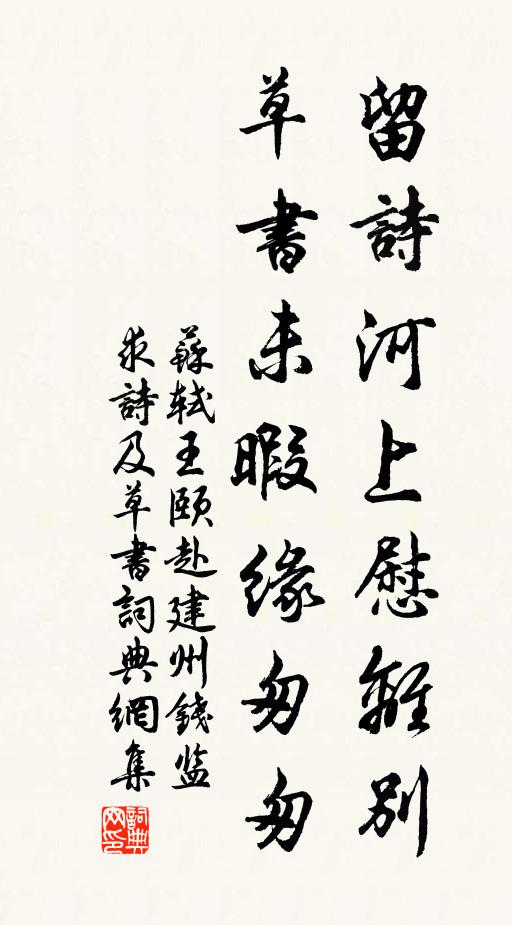 留詩河上慰離別
草書未暇緣匆匆
蘇軾王頤赴建州錢监
求詩及草書詞典網集
詞典網印